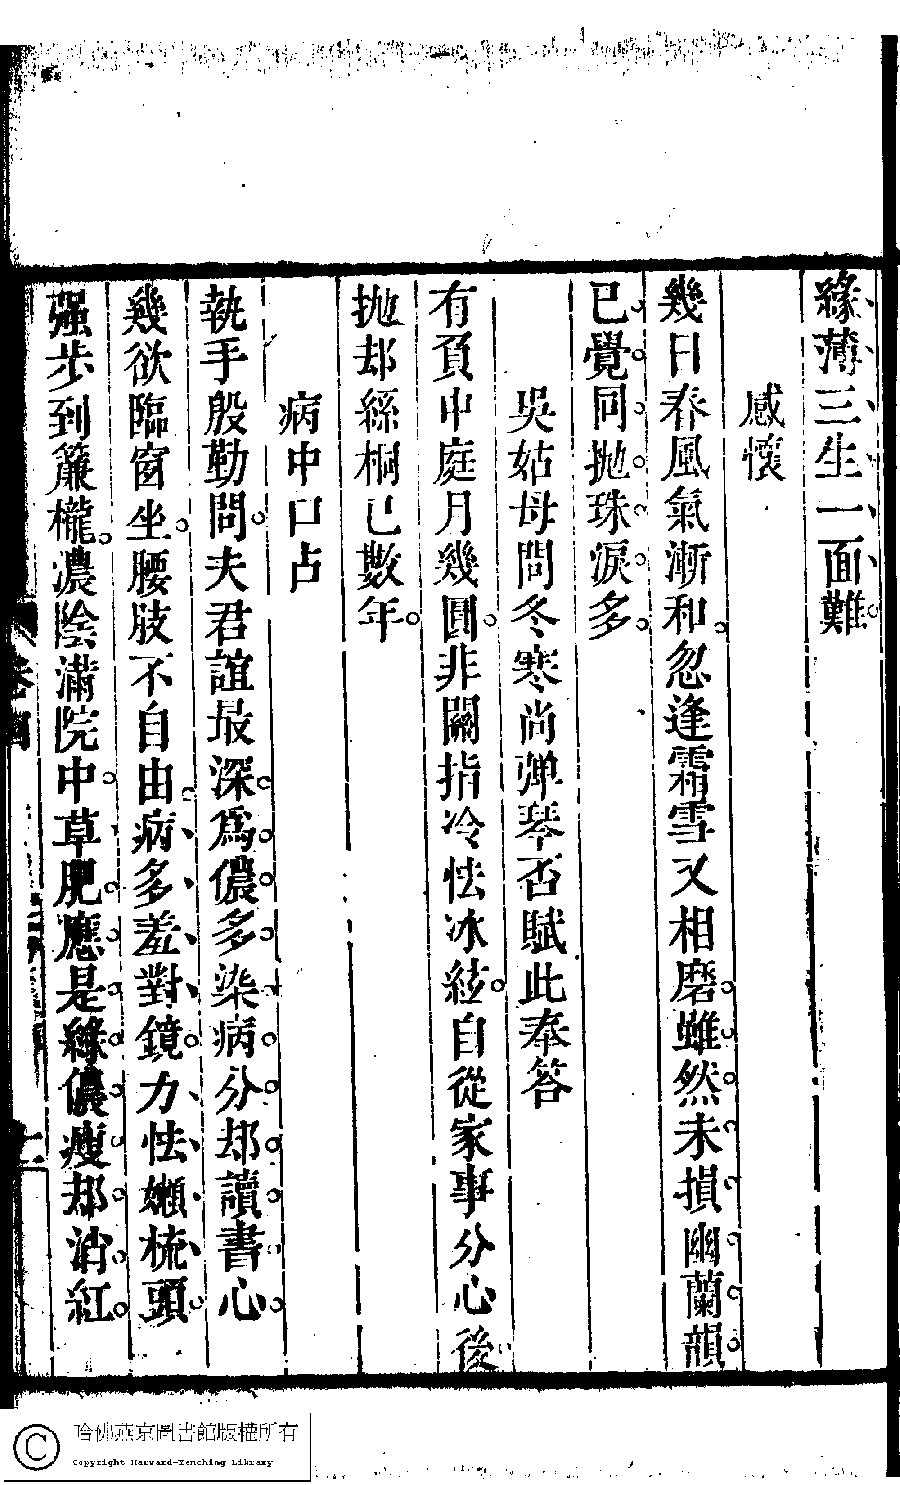 緣薄三生一面難
感懷
幾日春風氣漸和忽逢霜雪又相磨雖然未損幽蘭韻
已覺同抛珠淚多
吳姑母問冬寒尚彈琴否賦此奉答
有頁中庭月幾圓非關指冷怯冰絃自從家事分心後
抛却絲桐已數年
病中口占
執手殷勤問夫君誼最深爲儂多染病分却讀書心
幾欲臨窗坐腰肢不自由病多羞對鏡力怯嬾梳頭
强步到簾櫳濃陰滿院中草肥應是緣儂瘦却消紅
卷四
哈佛燕京圖書館版權所有
Copyright Harvard-Yenching Library